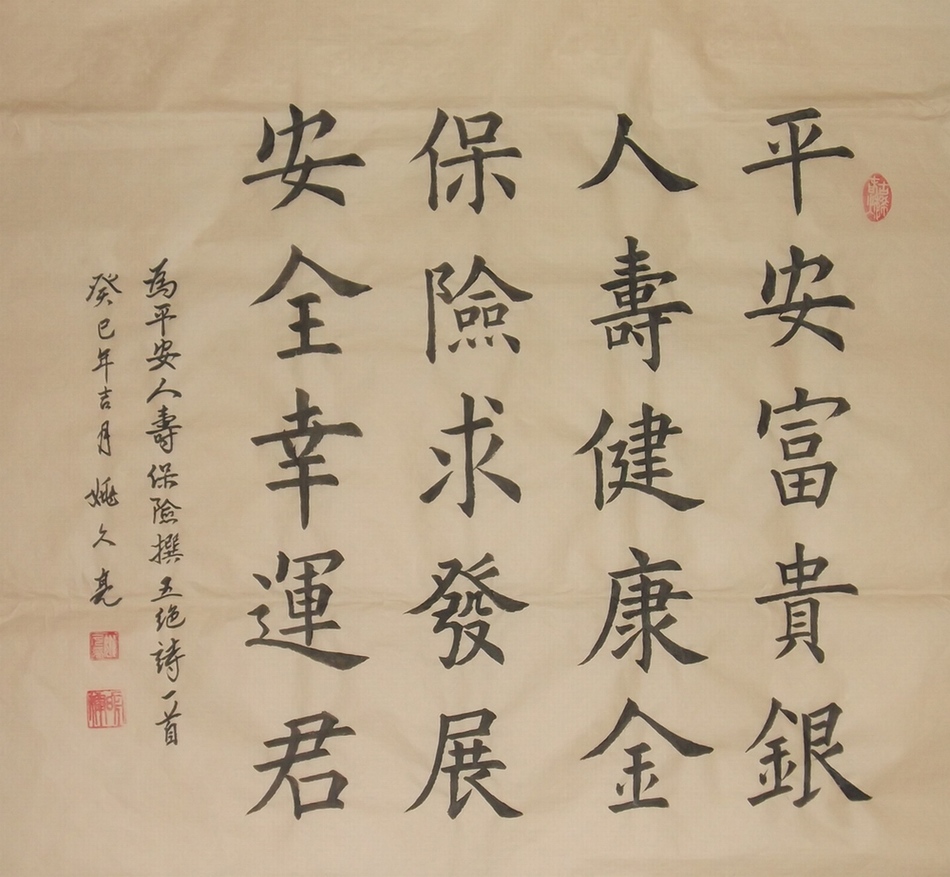 平安富貴銀
人壽健康金
保險求發展
安全幸運君
為平安人壽保險撰五绝詩一首
癸巳年吉月 姚久亮